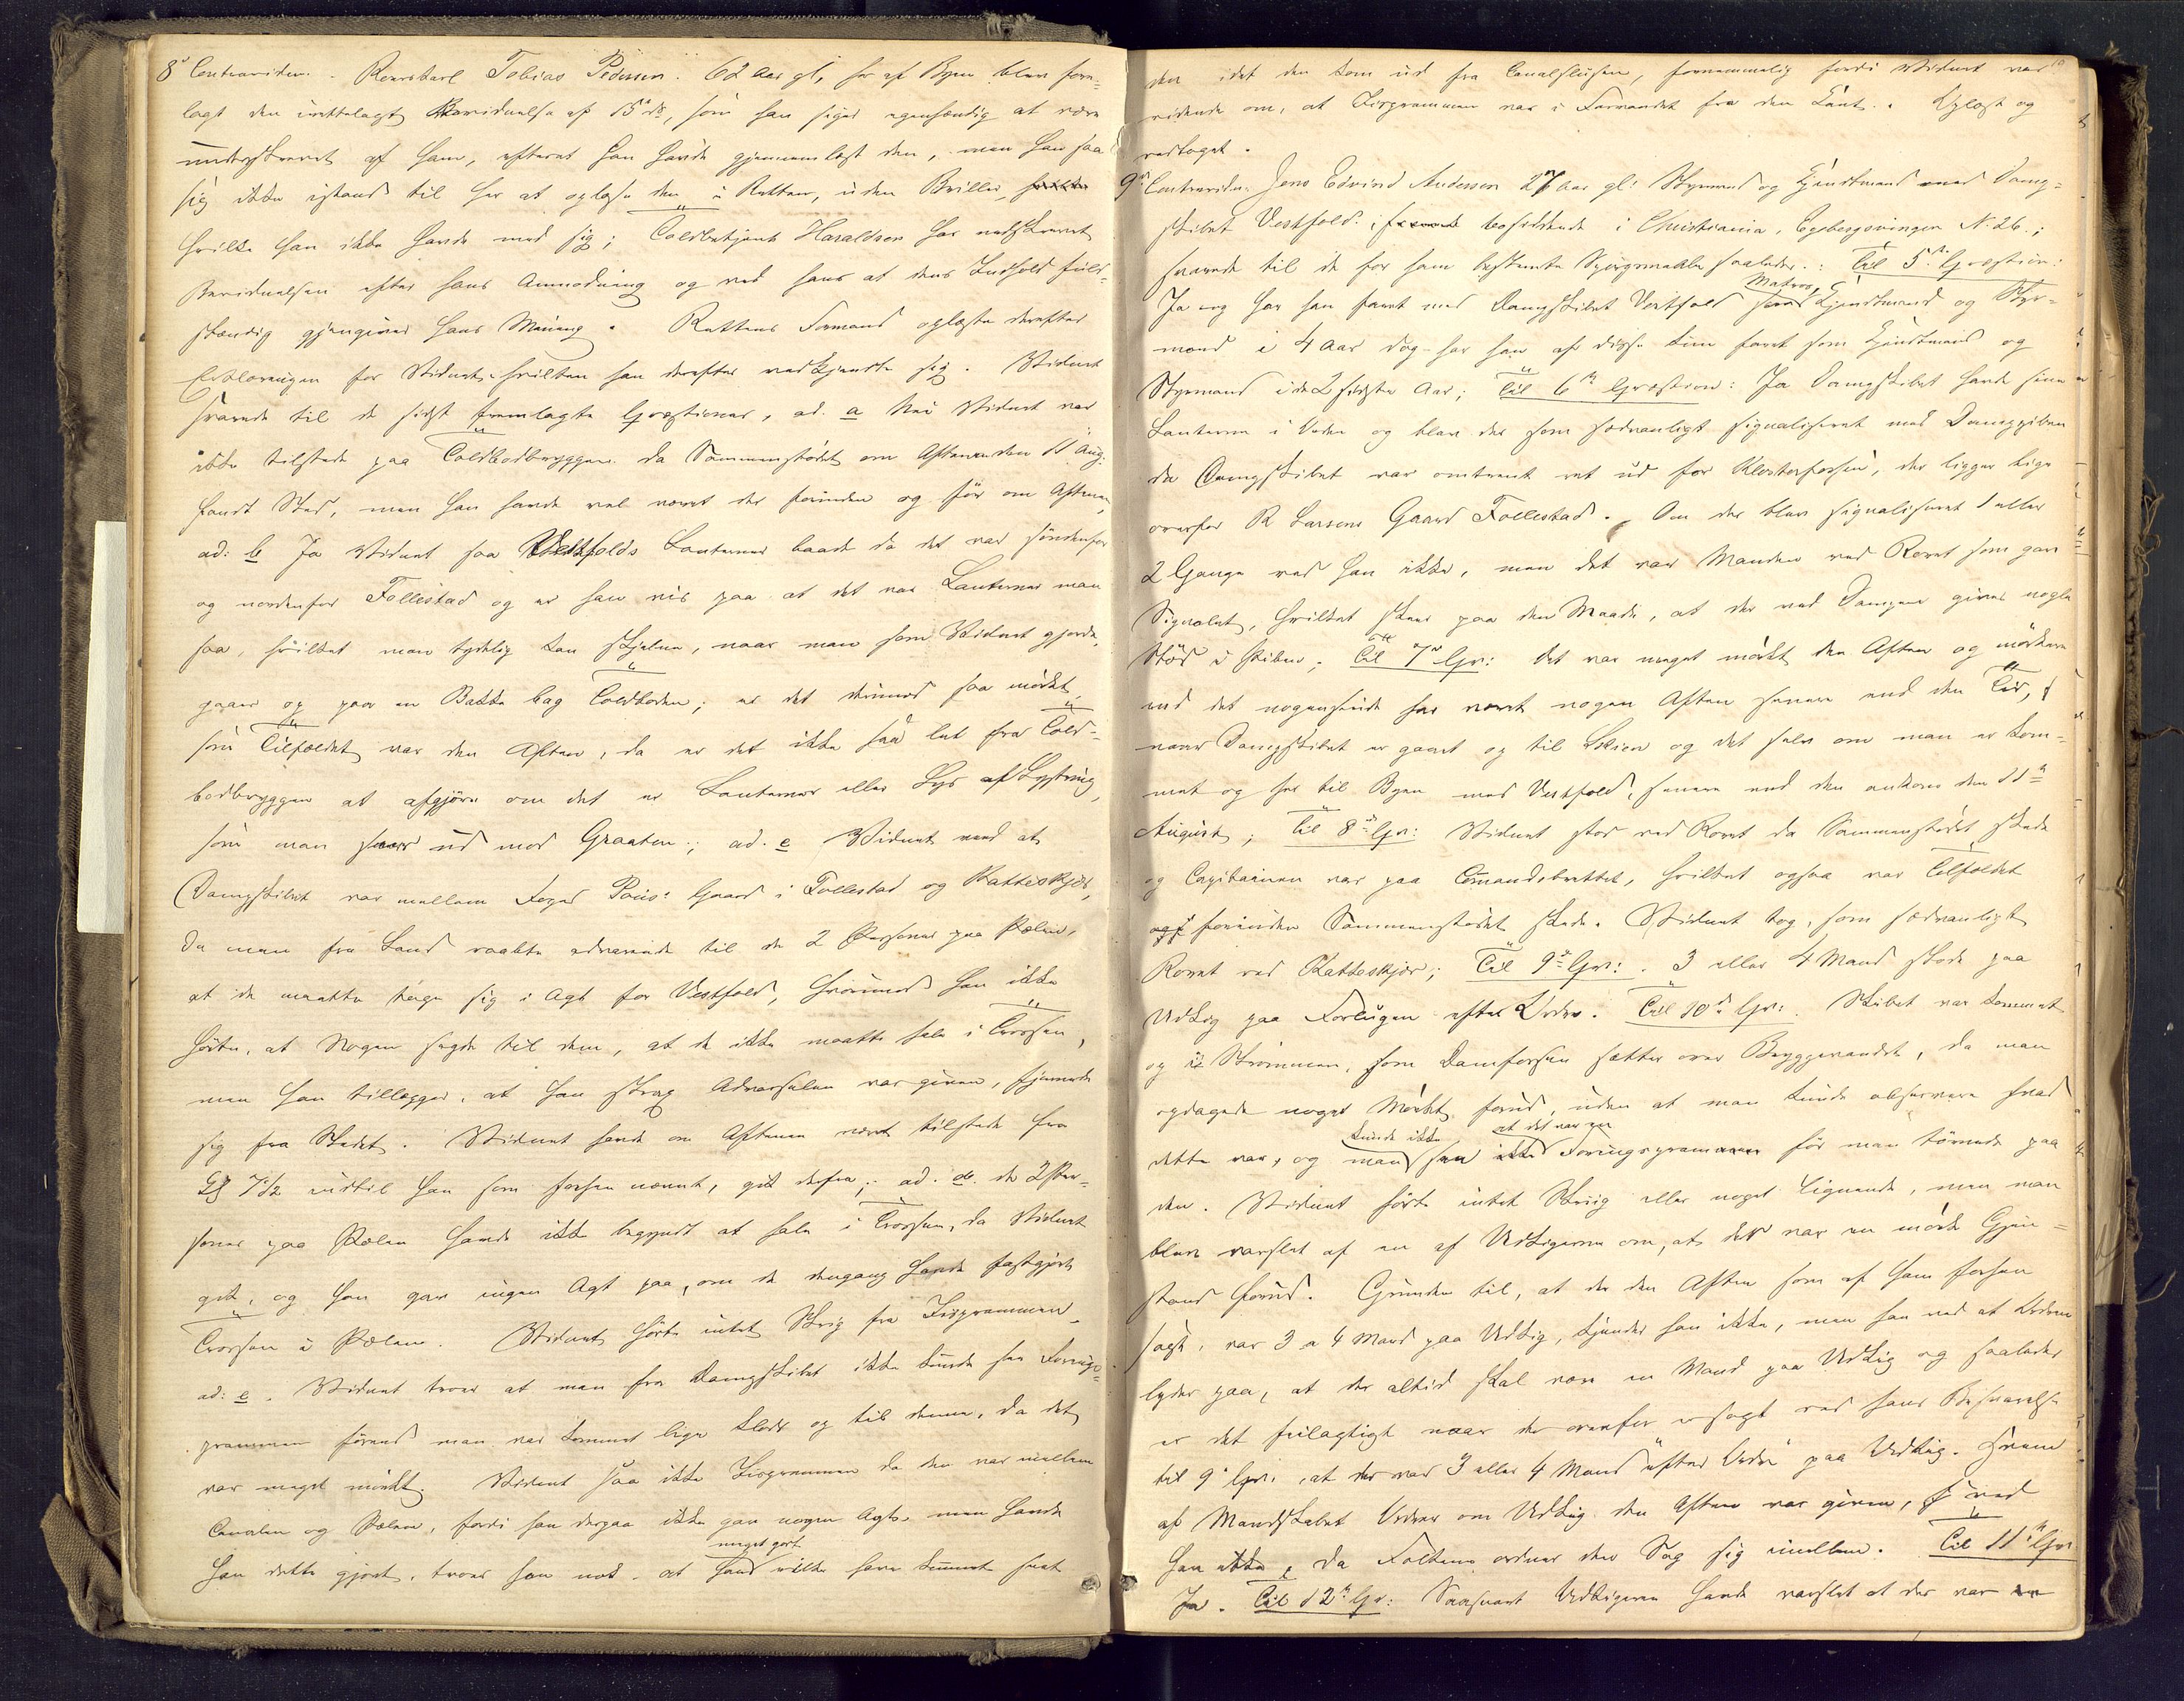 8de Contravidne. Roerskarl Tobias Pedersen. 62 Aar gl, her af Byen blev fore-
lagt den indtelagte Bevidnelse af 15de ds, som han siger egenhændig at være
underskrevet af ham, efterat han havde gjennemlæst den, men han saa
sig ikke istand til her at oplæse den i Retten, uden Briller,
hvilke han ikke havde med sig; Toldbetjent Haraldsen har nedskrevet
Bevidnelsen efter hans Anmodning og ved hans at dens Indhold fuld-
stændig gjengiver hans Mening. Rettens Formand oplæste derefter
Erklæringen for Vidnet, hvilken han derefter vedkjendte sig. Vidnet
svarede til de sidst fremlagte Qvæstioner, ad. a Nei Vidnet var
ikke tilstede paa Toldbodbryggen da Sammenstødet om Aftenen den 11 Aug:
fandt Sted, men han havde vel været der forinden og før om Aftenen,
ad: b Ja Vidnet saa Vestfolds Lanterner baade da det var søndenfor
og nordenfor Follestad og er han vis paa at det var Lanterner man
saa, hvilket man tydelig kan skjelne, naar man som Vidnet gjorde,
gaar op paa en Bakke bag Toldboden; er det derimod saa mørkt,
som Tilfældet var den Aften, da er det ikke saa let fra Told-
bodbryggen at afgjøre om det er Lanterner eller Lys af Lystring,
som man seer ud mod Graaten; ad. c Vidnet ved at
Dampskibet var mellem Foged Paus' Gaard i Follestad og Katteskjær,
da man fra Land raabte advarende til de 2 Personer paa Pælen,
at de maatte tage sig i Agt for Vestfold, hvorimod han ikke
hørte, at Nogen sagde til dem, at de ikke maatte hale i Trossen,
men han tillægger, at han strax Advarselen var given, fjernede
sig fra Stedet. Vidnet havde om Aftenen været tilstede fra
Kl 7½ indtil han som forhen nævnt, gik derfra; ad. d. de 2 Per-
soner paa Pælen havde ikke begyndt at hale i Trossen, da Vidnet
gik, og han gav ingen Agt paa, om de dengang havde fastgjort
Trossen i Pælen. Vidnet hørte intet Skrig fra Isprammen.
ad: e. Vidnet troer at man fra Dampskibet ikke kunde see Forings-
prammen førend man var kommet lige klods op til denne, da det
var meget mørkt. Vidnet saa ikke Isprammen da den var mellem
Canalen og Pælene, fordi han derpaa ikke gav nogen Agt, men havde
han dette gjort, troer han nok, at han meget godt vilde have kunnet seet
den idet den kom ud fra Canalslusen, fornemmelig fordi Vidnet var
vidende om, at Isprammen var i Farvandet fra den Kant. Oplæst og
vedtaget.
9de Contravidne Jens Edvind Andersen 27 Aar gl. Styrmand og Kjendtmand med Damp-
skibet Vestfold, bosiddende i Christiania, Egebergsvingen N. 26.;
svarede til de for ham bestemte Spørgsmaale saaledes: Til 5te Qvæstion:
Ja og har han faret med Dampskibet Vestfold som Matros, Kjendtmand og Styr-
mand i 4 Aar dog har han af disse kun faret som Kjendtmand og
Styrmand i de 2 sidste Aar; Til 6te Qvæstion: Ja Dampskibet havde sine
Lanterner i Orden og blev der som sædvanligt signaliseret med Damppiben
da Dampskibet var omtrent ret ud for Klosterfossen, der ligger lige
overfor R Larsens Gaard Follestad. Om der blev signaliseret 1 eller
2 Gange ved han ikke, men det var Manden ved Roret som gav
Signalet, hvilket skeer paa den Maade, at der ved Dampen gives nogle
Stød i Piben; Til 7de Qv: det var meget mørkt den Aften og mørkere
end det nogensinde har været nogen Aften senere end den Tid,
naar Dampskibet er gaaet op til Skien og det selv om man er kom-
met op her til Byen med Vestfold, senere end den ankom den 11te
August; Til 8de Qv: Vidnet stod ved Roret da Sammenstødet skede
og Capitainen var paa Comandobrættet, hvilket ogsaa var Tilfældet
forinden Sammenstødet skede. Vidnet tog, som sædvanligt
Roret ved Katteskjær; Til 9de Qv: 3 eller 4 Mand stode paa
Udkig paa Forlugen efter Ordre. Til 10de Qv: Skibet var kommet
op i Strømmen, som Damfossen sætter over Bryggevandet, da man
opdagede noget Mørkt forud, uden at man kunde observere hvad
dette var, og man kunde ikke see at det var en Foringspram før man tørnede paa
den. Vidnet hørte intet Skrig eller noget lignende, men man
blev varslet af en af Udkigerne om, at der var en mørk Gjen-
stand forud. Grunden til, at der den Aften som af ham forhen
sagt, var 3 a 4 Mand paa Udkig, kjender han ikke, men han ved at Ordren
lyder paa, at der altid skal være en Mand paa Udkig og saaledes
er det feilagtigt naar der ovenfor er sagt ved hans Besvarelse
til 9de Qv: at der var 3 eller 4 Mand "efter Ordre" paa Udkig. Hvem
af Mandskabet Ordren om Udkig den Aften var given, ved
han ikke, da Folkene ordner den Sag sig imellem. Til 11te Qv:
Ja. Til 12te Qv: Saasnart Udkigeren havde varslet at der var en